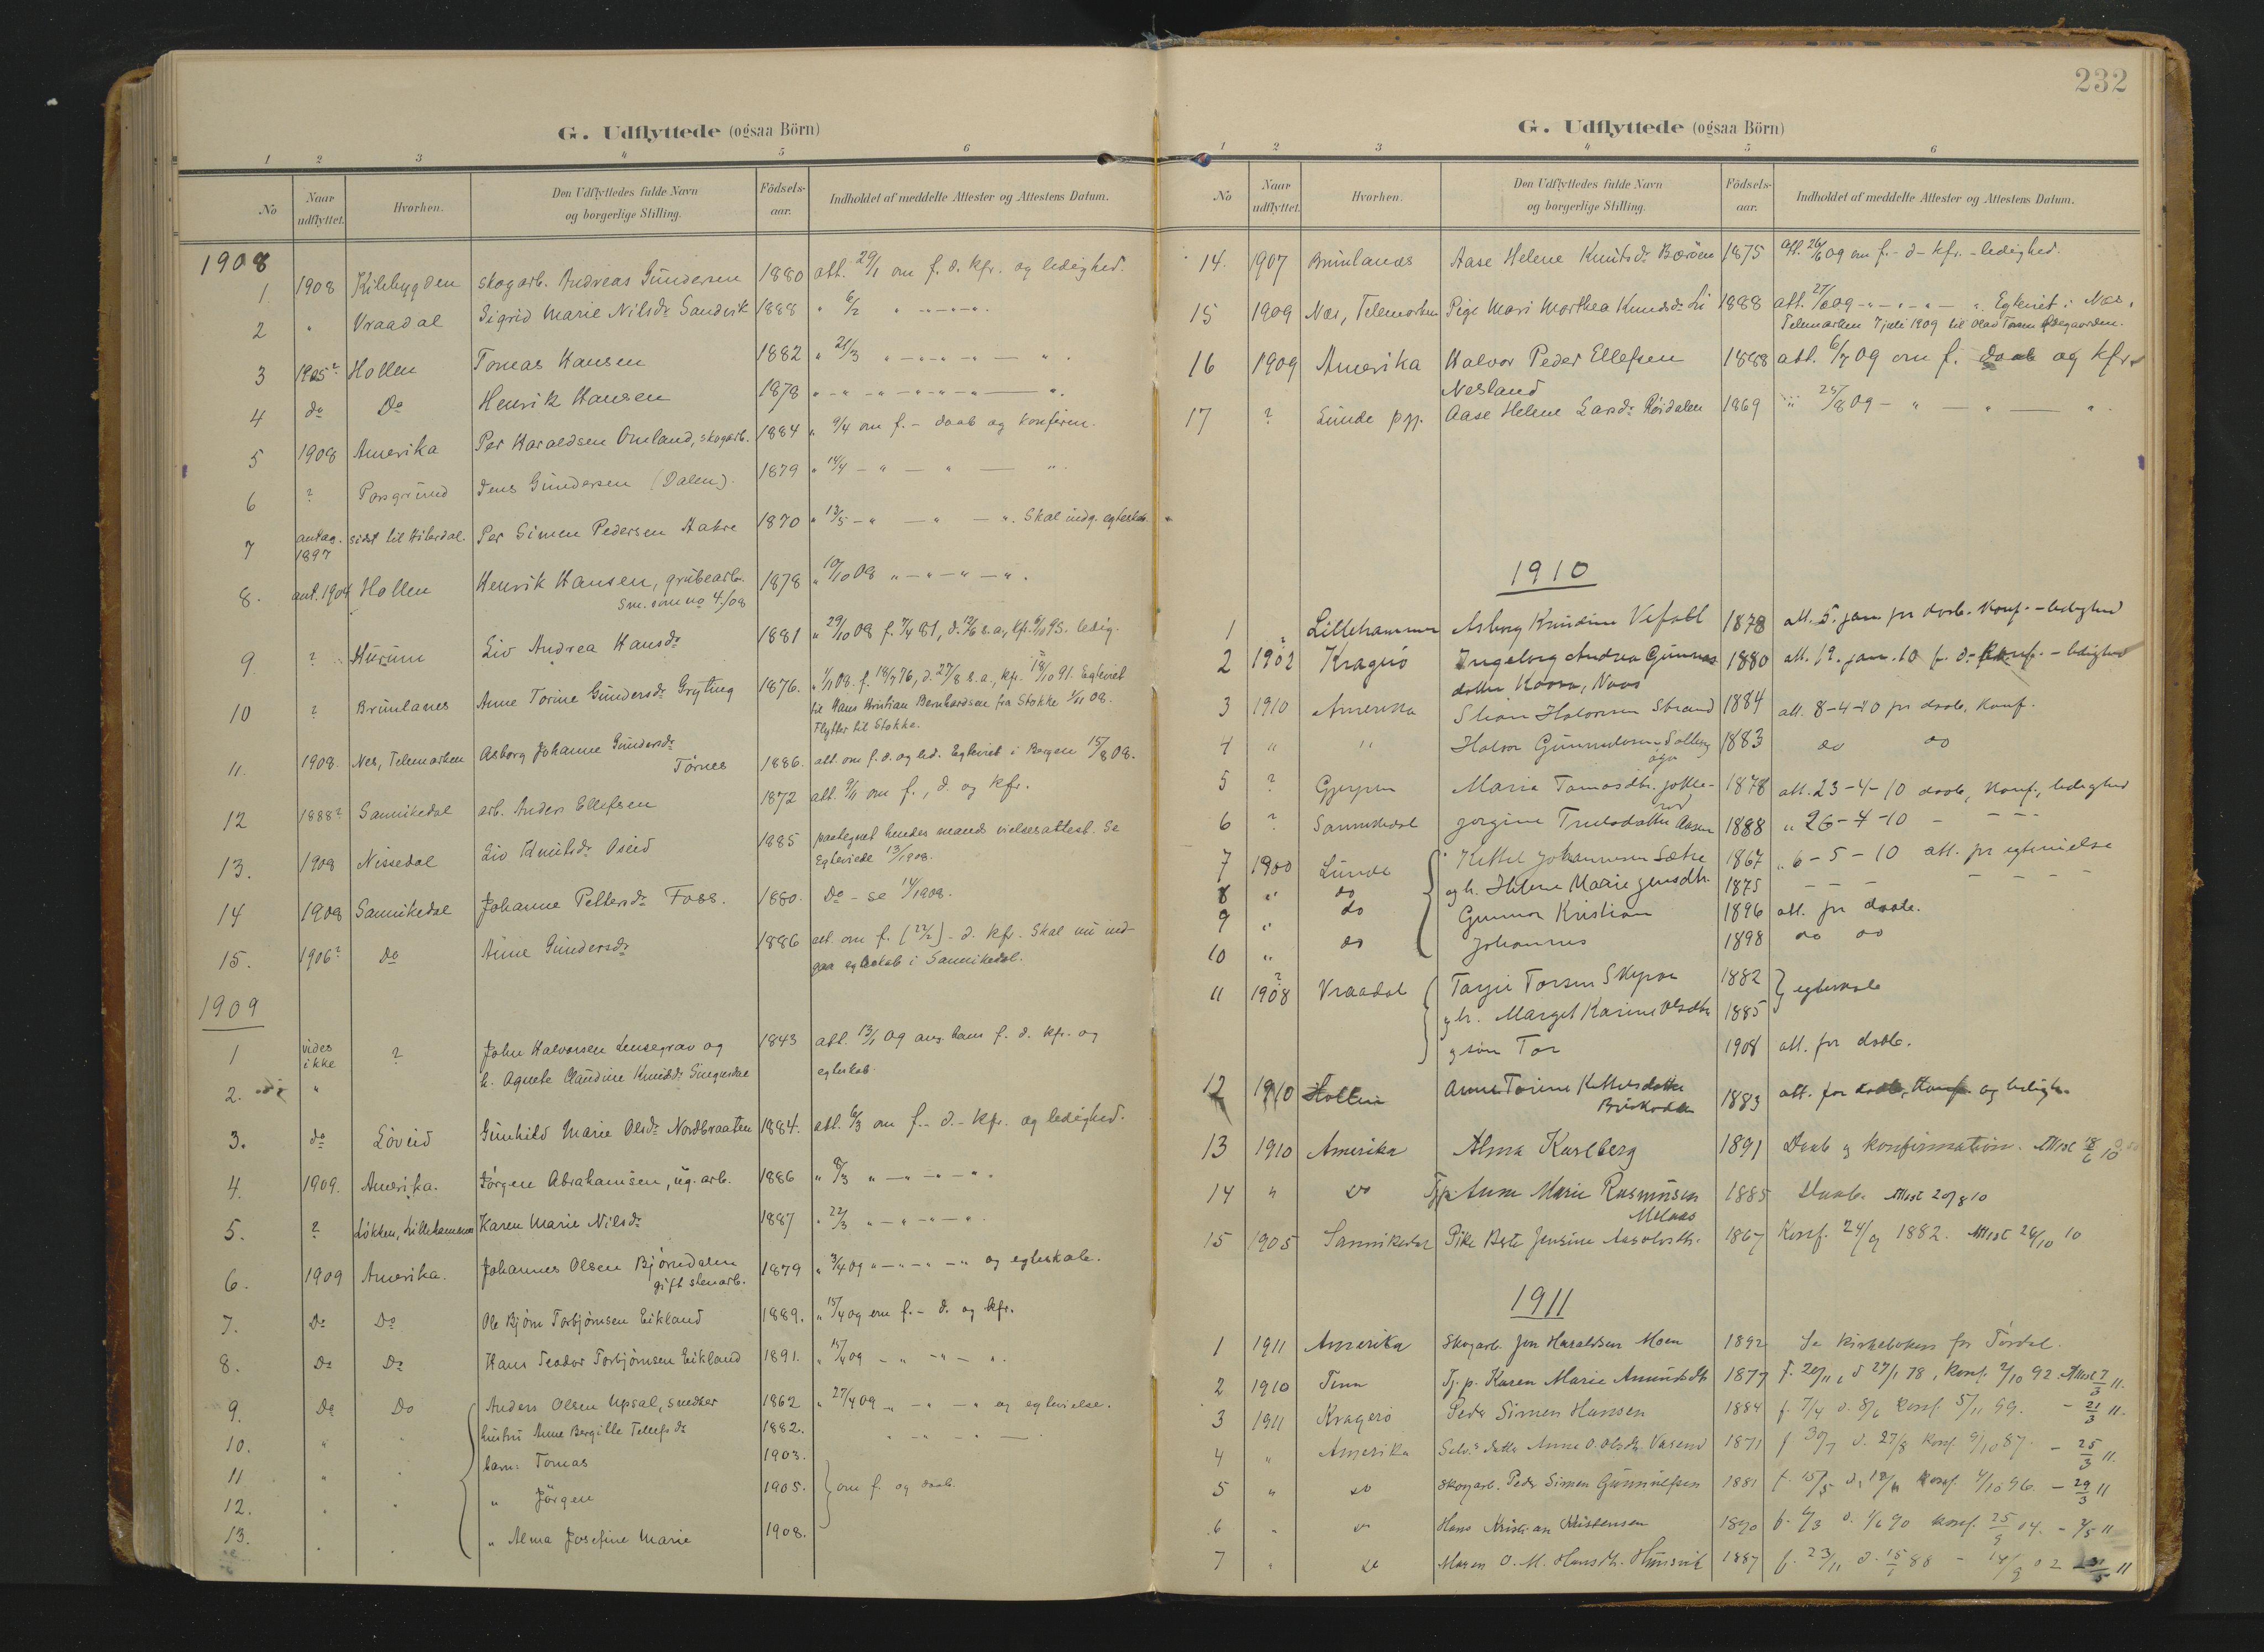 G. Udflyttede (ogsaa Börn)
1 2 3 4 5 6
No Naar udflyttet. Hvorhen. Den Udflyttedes fulde Navn og borgerlige Stilling. Födsels-aar. Indholdet af meddelte Attester og Attestens Datum.
1908
1. 1908 Kilebygden skogarb. Andreas Gundersen 1880 att. 29/1 om f. d. kfr. og ledighed.
2 " Vraadal Sigrid Marie Nilsdr Sandvik 1888 " 6/2 " - " - " - " .
3 1905? Hollen Tomas Hansen 1882 " 21/3 " - " - " - " .
4 do Do Henrik Hansen 1878 " - " - " - " - "
5 1908 Amerika Per Haraldsen Omland, skogarb. 1884 " 9/4 om f. - daab og konfirm.
6 ? Porsgrund Jens Gundersen (Dalen). 1879 " 14/4 - " - " - " .
7 antag. 1897 sidst til Hiterdal. Per Simen Pedersen Aakre 1870 " 13/5 - " - " - ". Skal indg. egteskab.
8. ant. 1904 Hollen Henrik Hansen, grubearb. 1878 " 10/10 08 " - " - " - " .
sm. som no 4./08
9 ? Hurum Liv Andrea Hansdr 1881 " 29/10 08 f. 7/4 81, d. 12/6 s.a, kfr. 6/10 95. ledig.
10 ? Brunlanes Anne Torine Gundersdr Gryting 1876. " 1/1 08. f. 18/7 76, d. 27/8 s.a., kfr. 18/10 91. Egteviet
til Hans Kristian Bernhardsen fra Stokke 1/11 08.
Flytter til Stokke.
11. 1908. Nes, Telemarken Asborg Johanne Gundersdr Törnes 1886. att. om f. d. og led. Egteviet i Bergen 15/8 08.
12 1888? Sannikedal arb. Anders Ellefsen 1872 att. 9/11 om f., d. og kfr.
13. 1908 Nissedal Liv Knutsdr Oseid 1885 paategnet hendes mands vielsesattest. Se
Egteviede 13/1908.
14 1908 Sannikedal Johanne Pettersdr Foss. 1880. Do - se 14/1908.
15. 1906? Do Anne Gundersdr 1886 att. om f. (22/2) - d. kfr. Skal nu ind-
gaa egteskab i Sannikedal.
1909
1 vides ikke ? John Halvorsen Lensegrav og 1843 att. 13/1 09 ang. hans f. d. kfr. og
2. " h. Agnete Claudine Knutsdr egteskab.
3. do Löveid Gunhild Marie Olsdr Nordbraaten 1884. att. 6/3 om f. - d. - kfr. og ledighed.
4. 1909. Amerika. Jörgen Abrahamsen, ug. arb. 1886 " 8/3 " - " - " - " .
5. ? Lökken, Lillehammer Karen Marie Nilsdr 1887 " 22/3 " - " - " - " .
6. 1909 Amerika. Johannes Olsen Björndalen 1879 " 3/4 09 " - " - " - " og egteskab.
gift stenarb.
7. Do Do Ole Björn Torbjörnsen Eikland 1889. " 15/4 09 om f. - d. og kfr.
8. Do Do Hans Teodor Torbjörnsen Eikland 1891. " 15/4 09 - " - " - " .
9. Do Do Anders Olsen Upsal, snedker 1862 " 27/4 09 " - " - " og egtevielse.
10. " " hustru Anne Bergitte Tellefsdr 1882. " - " - " - .
11 " " barn: Tomas 1903.
12. " " " Jörgen 1905. om f. og daab.
13. " " " Alma Josefine Marie 1908.
232
G. Udflyttede (ogsaa Börn)
1 2 3 4 5 6
No Naar udflyttet. Hvorhen. Den Udflyttedes fulde Navn og borgerlige Stilling. Födsels-aar. Indholdet af meddelte Attester og Attestens Datum.
14. 1907 Brunlanes Aase Helene Knutsdr Bæröen 1875 att. 26/6 09 om f. - d - kfr. - ledighed.
15 1909 Nes, Telemarken Pige Mari Marthea Knudsdr Li 1888 att. 27/6 09 - " - " - " - ". Egteviet i Nes,
Telemarken 7 juli 1909 til Olav Ödegaarden.
16 1909 Amerika Halvor Peder Ellefsen Nesland 1888 att. 6/7 09 om f. daab og kfr.
17 ? Lunde pgj. Aase Helene Larsdr Röidalen 1869 " 25/8 09 - " - " - " .
1910
1 ? Lillehammer Asborg Kristine Vefall 1878 att. 5. jan for daab. Konf. - ledighed
2 1902 Kragerö Ingeborg Andrea Gunnars 1880 att. 19. jan. 10 f. d. - Konf. - ledighed
datter
3 1910 Amerika Halvorsen Strand 1884 att. 8-4-10 for daab, Konf.
4 " " Halvor Gunnulvsen Solberg 1883 do do
5 ? Gjerpen Maria Tomasdtr. 1878 att. 23-4-10 daab, Konf., ledighed
6 ? Sannikedal Jorgine Trulsdatter Aasen 1888 " 26-4-10 - - - -
7 1900 Lunde Kittel Johannesen Sætre 1867 " 6-5-10 att. for egtevielse
8 " do og h. Helene Marie Jensdtr. 1875 - - - - - - -
9 " do Gunnar Kristian 1896 att. for daab.
10 " do Johannes 1898 do do
11 1908? Vraadal Tarjei Torsen 1882 egteskab
og h. Marget Karine Olsdtr 1885
og sön Tor 1908 att. for daab.
12 1910 Hollen Anne Torine Kittelsdatter 1883 att. for daab, Konf. og ledigh.
13 1910 Amerika Alma Karlberg 1891 Daab og konfirmation. Attest 18/6 10
14 " do Tj.p. Anna Marie Rasmusen Melaas 1885 Daab. Attest 20/8 10
15 1905 Sannikedal Pike Berte Jensine Aasolvsdtr. 1867 Konf. 24/9 1882. Attest 26/10 10
1911
1 1911 Amerika Skogarb. Jon Haraldsen Moen 1892 Se kirkeboken for Tördal.
2 1910 Tinn Tj. p. Karen Marie Amundsdtr 1877 f. 20/11, d 27/1 78, konf. 2/10 92 Attest 7/3 11.
3 1911 Kragerö Peder Simen Hansen 1884 f. 7/4 d. 8/6 konf. 5/11 99. - 21/3 11.
4 " Amerika Selv. datter Anne O. Olsdtr. Vasend 1871 f 30/7 d. 27/8 konf. 9/10 87. - 25/3 11.
5 " do Skogarb. Peder Simen Gunnulfsen 1881 f. 15/5 d. 18/ konf. 4/10 96. - 29/3 11
6 " do Hans Kristian Kristensen 1890 f. 6/3 d. 4/6 90 konf. 25/9 04. - 4/5 11
7 " do Maren O. M. Hansdtr. 1887 f. 23/11 d. 15/1 88 - 14/9 02 - 31/5 11